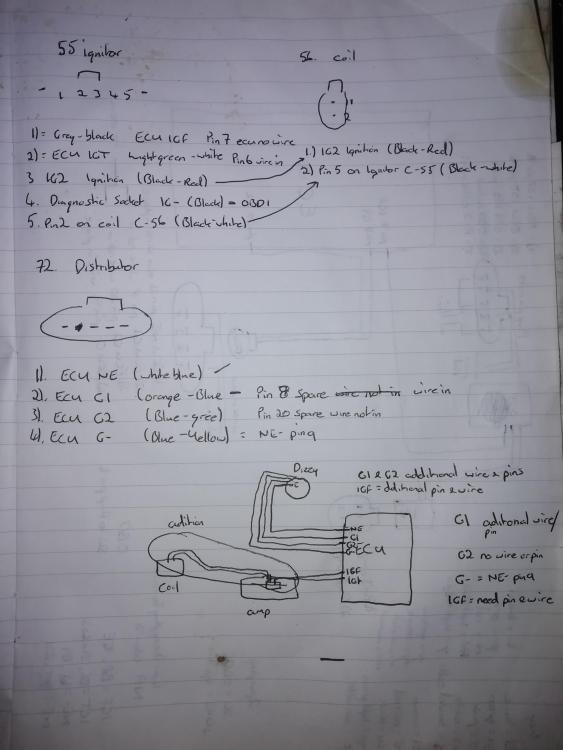 55 ignitor
56. coil
- 1 2 3 4 5 -
1
2
1) = Grey-black ECU IGF Pin 7 ecu no wire
2) = ECU IGT Lightgreen-white Pin 6 wire in
3 IG2 Ignition (Black-Red)
4. Diagnostic Socket IG- (Black) = OBD1
5. Pin 2 on coil C-56 (Black-white)
1.) IG2 Ignition (Black-Red)
2) Pin 5 on Ignitor C-55 (Black-white)
72. Distributor
1). ECU NE (white blue)
2). ECU G1 (orange-Blue - Pin 8 spare wire not in wire in
3). ECU G2 (Blue-gree) Pin 20 spare wire not in
4). ECU G- (Blue-Yellow) = NE- pin 9
Dizzy
G1 & G2 additional wire & pins
IGF = dditional pin & wire
NE
G1
G2
G-
ECU
IGF
IGT
Coil
amp
G1 aditonal wire/pin
G2 no wire or pin
G- = NE- pin 9
IGF = need pin & wire